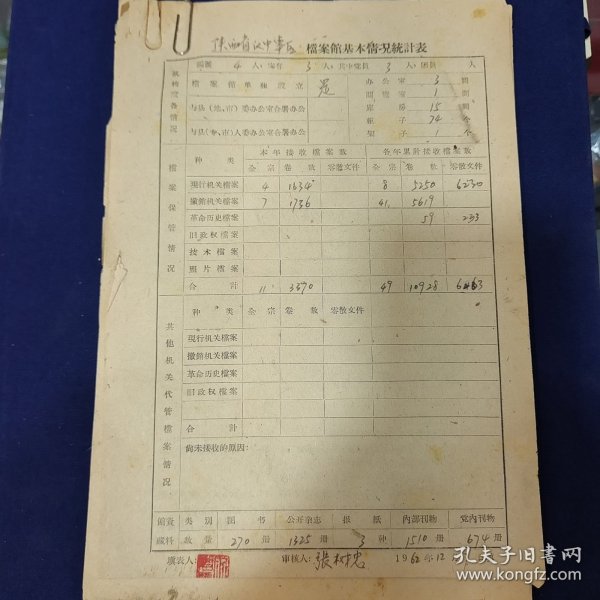 陕西省汉中专区 檔案館基本情况統計表
机构設备情况
編制 4 人：現有 3 人：其中党員 3 人：团員 人
檔案館单独設立 是
与县（地、市）委办公室合署办公
与县（专、市）人委办公室合署办公
办公室 3 間
閱覽室 1 間
庫房 15 間
柜子 74 个
架子 1 个
檔案保管情况
种类 本年接收檔案数 各年累計接收檔案数
全宗 卷数 零散文件 全宗 卷数 零散文件
現行机关檔案 4 1634 8 5250 6230
撤銷机关檔案 7 1736 41 5619
革命历史檔案 59 233
旧政权檔案
技术檔案
照片檔案
合計 11 3370 49 10928 6463
其他机关代管檔案情况
种类 全宗 卷数 零散文件
現行机关檔案
撤銷机关檔案
革命历史檔案
旧政权檔案
合計
尚未接收的原因：
館資 类別 图书 公开杂志 报紙 內部刊物 党內刊物
藏料 数量 270 册 1325 册 3 种 1510 册 674 册
填表人： 审核人： 1962年12
孔夫子旧书网
www.kongfz.com